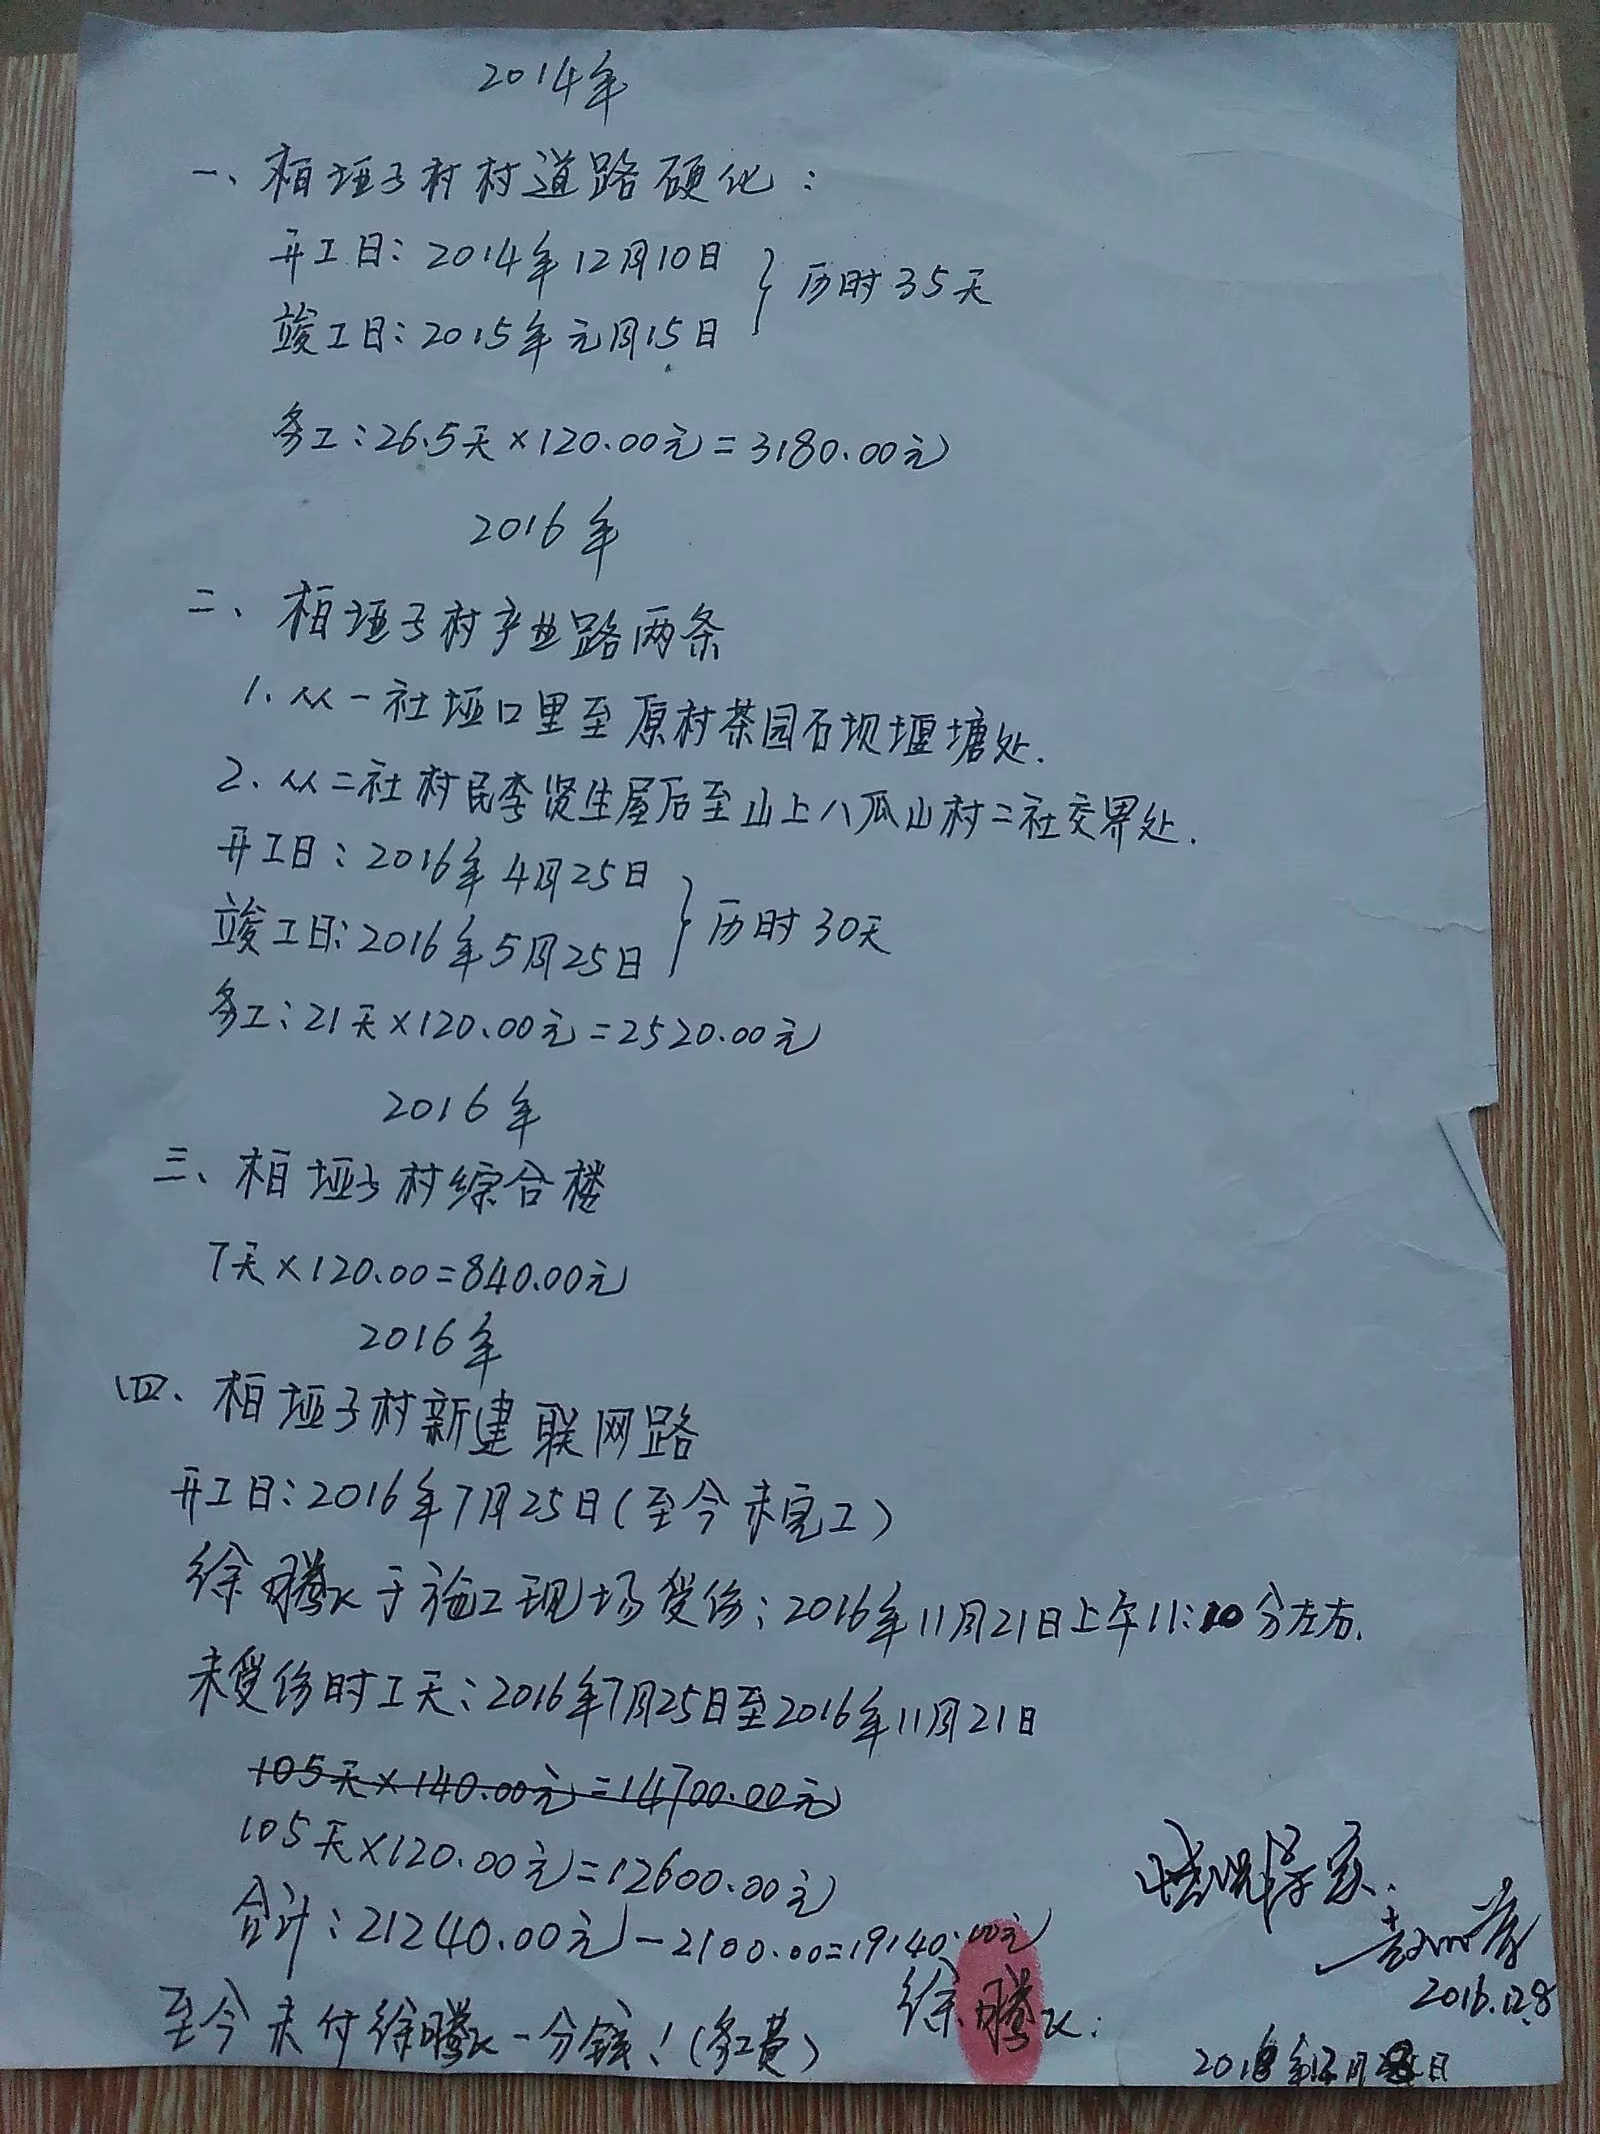 2014年
一、柏垭子村村道路硬化：
开工日：2014年12月10日
竣工日：2015年元月15日
} 历时35天
务工：26.5天×120.00元=3180.00元
2016年
二、柏垭子村产业路两条
1.从一社垭口里至原村茶园石坝堰塘处.
2.从二社村民李贤生屋后至山上八瓜山村二社交界处.
开工日：2016年4月25日
竣工日：2016年5月25日
} 历时30天
务工：21天×120.00元=2520.00元
2016年
三、柏垭子村综合楼
7天×120.00=840.00元
2016年
四、柏垭子村新建联网路
开工日：2016年7月25日(至今未完工)
徐腾火于施工现场受伤：2016年11月21日上午11:10分左右.
未受伤时工天：2016年7月25日至2016年11月21日
105天×140.00元=14700.00元
105天×120.00元=12600.00元
合计：21240.00元-2100.00=19140.00元
情况属实.
2016.12.8
至今未付徐腾火一分钱！(务工费)
徐腾火：